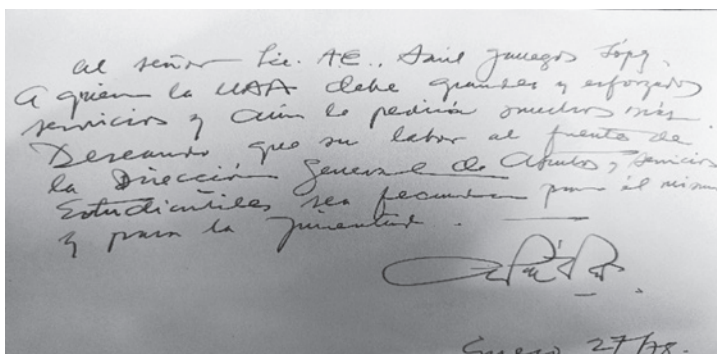 al señor Lic. A.E., Saúl Juaregos López.
A quien la UAA debe grandes y esforzados
servicios y aún le pedirá muchos más.
Deseando que su labor al frente de
la Dirección General de Asuntos y Servicios
Estudiantiles sea fecunda para él mismo
y para la juventud.
Enero 27/78.